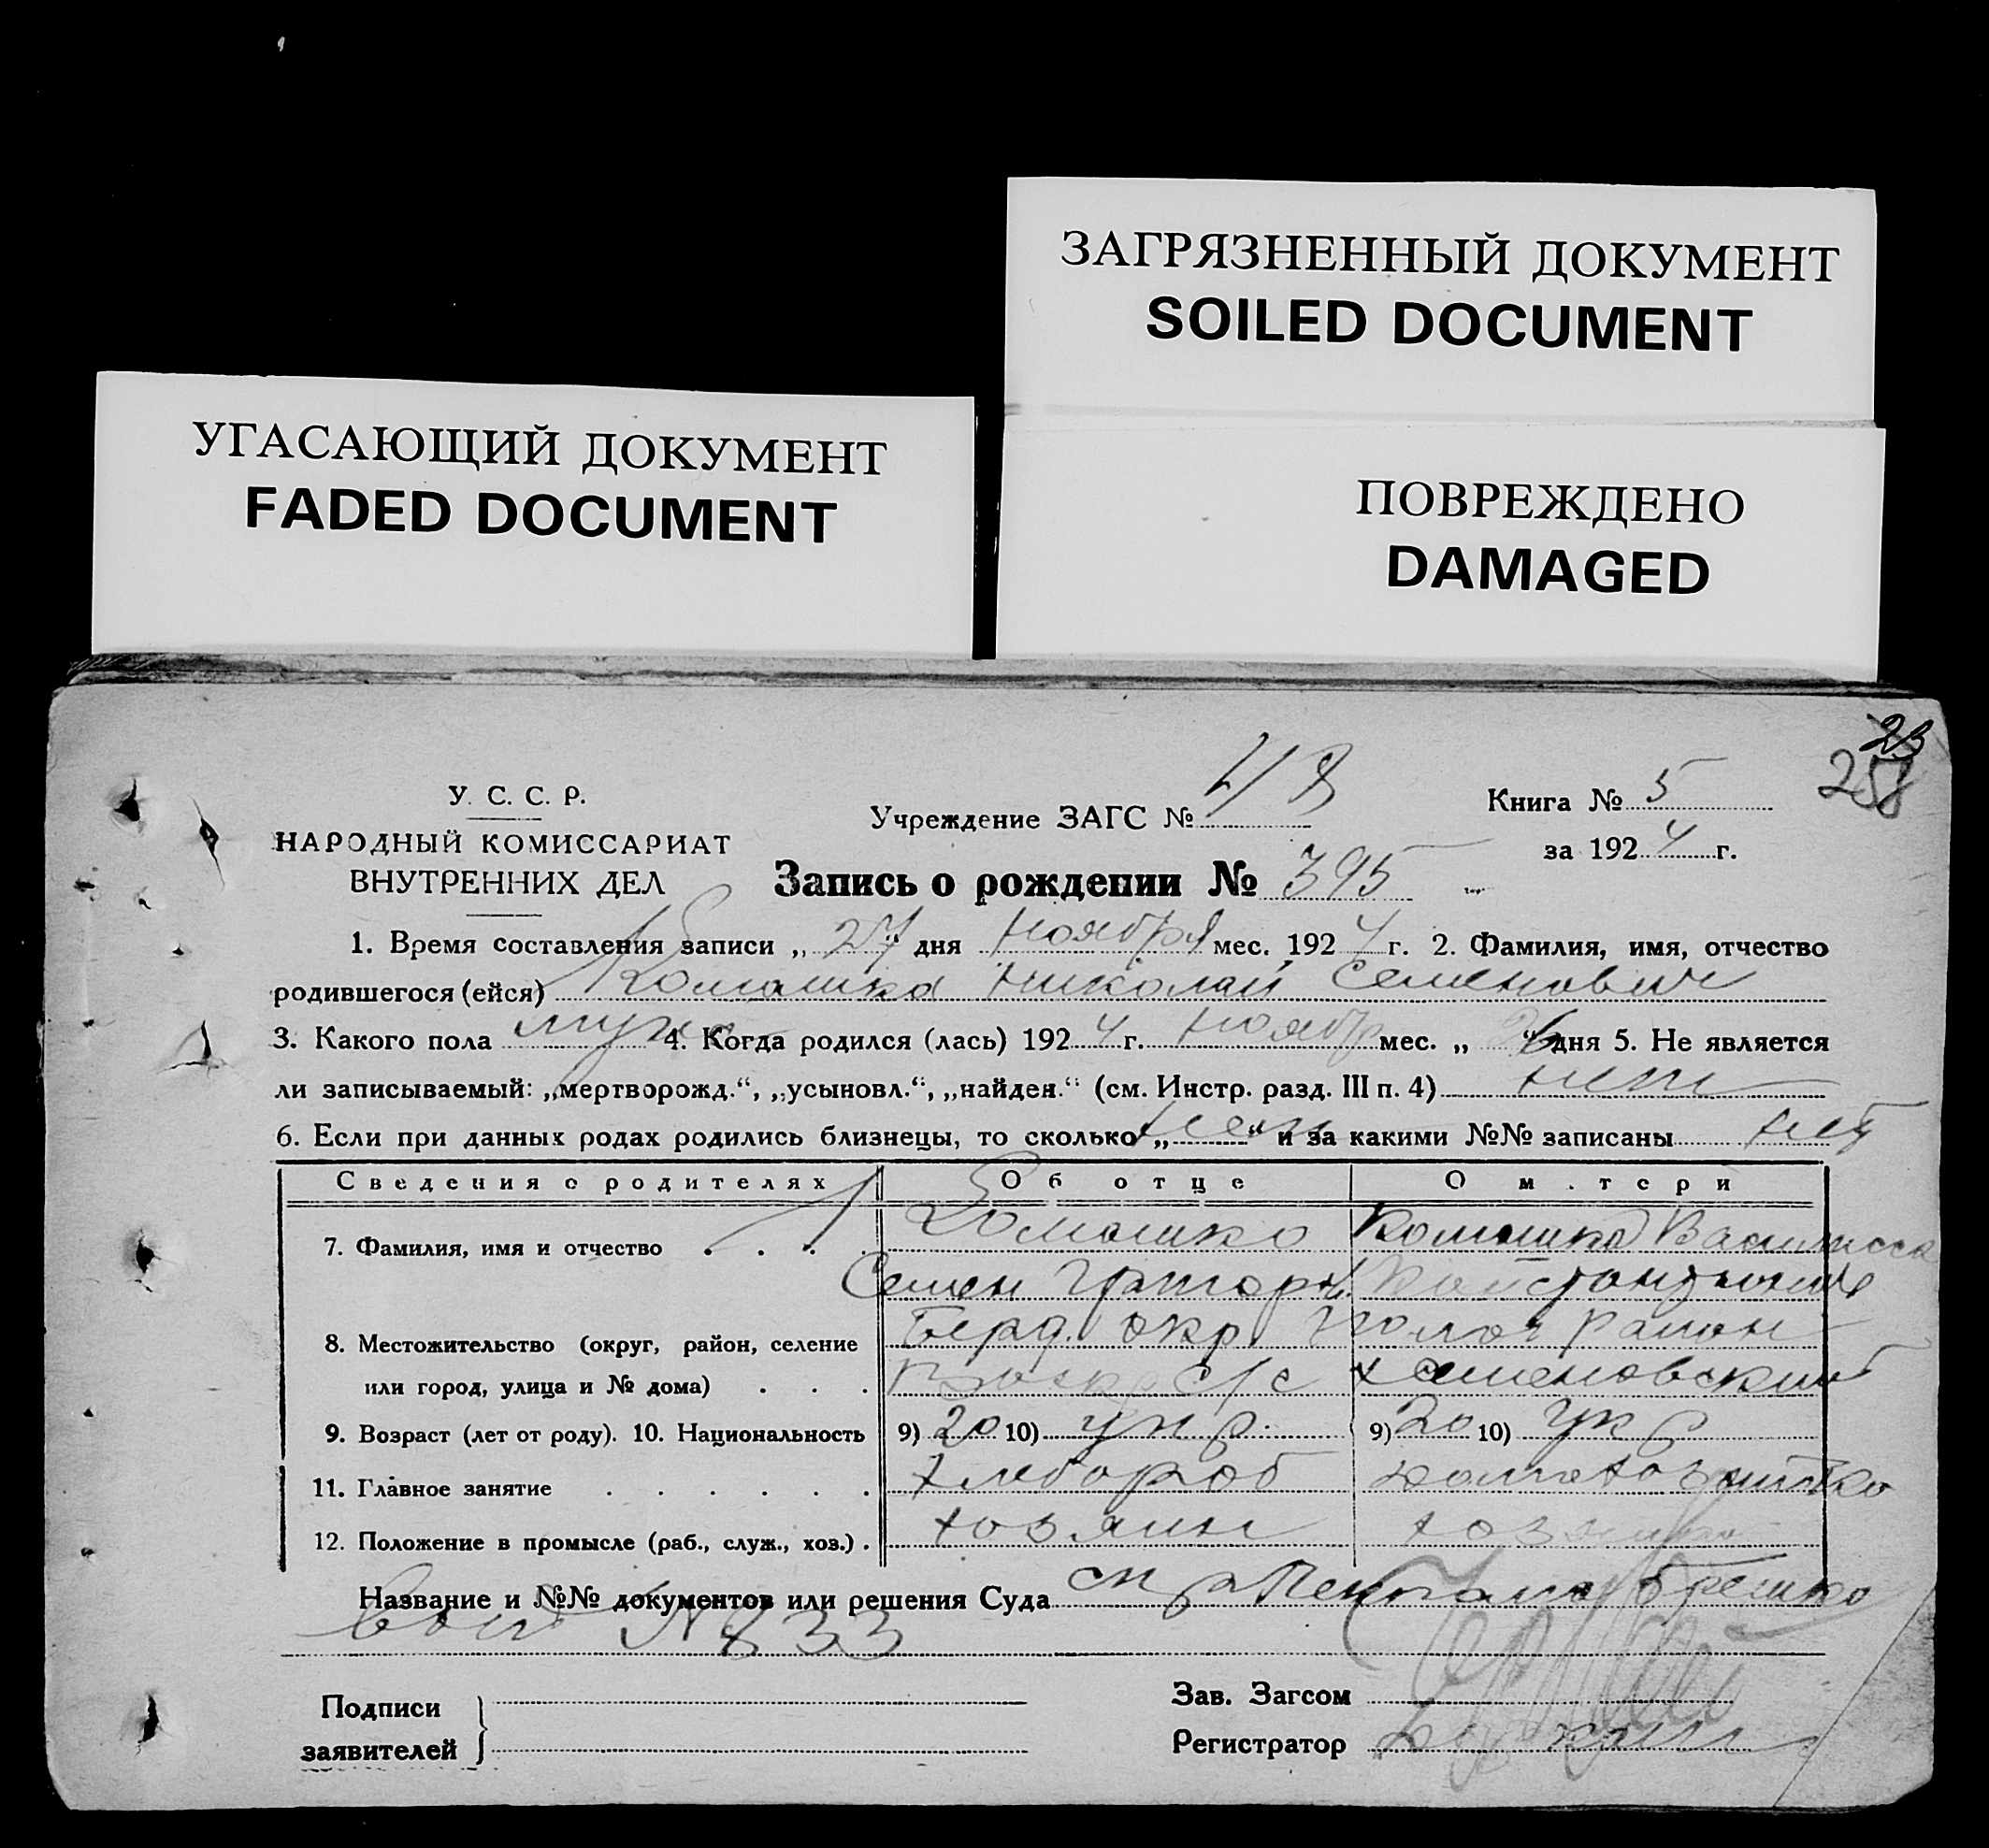 ЗАГРЯЗНЕННЫЙ ДОКУМЕНТ
SOILED DOCUMENT
УГАСАЮЩИЙ ДОКУМЕНТ
FADED DOCUMENT
ПОВРЕЖДЕНО
DAMAGED
23
258
У. С. С. Р.
НАРОДНЫЙ КОМИССАРИАТ
ВНУТРЕННИХ ДЕЛ
Учреждение ЗАГС №
Книга № 5
за 1924 г.
Запись о рождении № 395
1. Время составления записи „ 27 “ дня Ноября мес. 1924 г. 2. Фамилия, имя, отчество
родившегося (ейся) Комашко Николай Семенович
3. Какого пола муж 4. Когда родился (лась) 1924 г. Ноябр мес. „ 26 “ дня 5. Не является
ли записываемый: „мертворожд.“, „усыновл.“, „найден.“ (см. Инстр. разд. III п. 4) нет
6. Если при данных родах родились близнецы, то сколько „ нет “ и за какими №№ записаны нет
Сведения о родителях Об отце О м.тери
7. Фамилия, имя и отчество Комашко Комашко Василисса
Семен Григорь
8. Местожительство (округ, район, селение Берд. окр. район
или город, улица и № дома) с/с Семеновский
9. Возраст (лет от роду). 10. Национальность 9) 20 10) укр. 9) 20 10) укр
11. Главное занятие хлебороб домохозяйка
12. Положение в промысле (раб., служ., хоз.) хозяин
Название и №№ документов или решения Суда
№ 833
Подписи
заявителей
Зав. Загсом
Регистратор